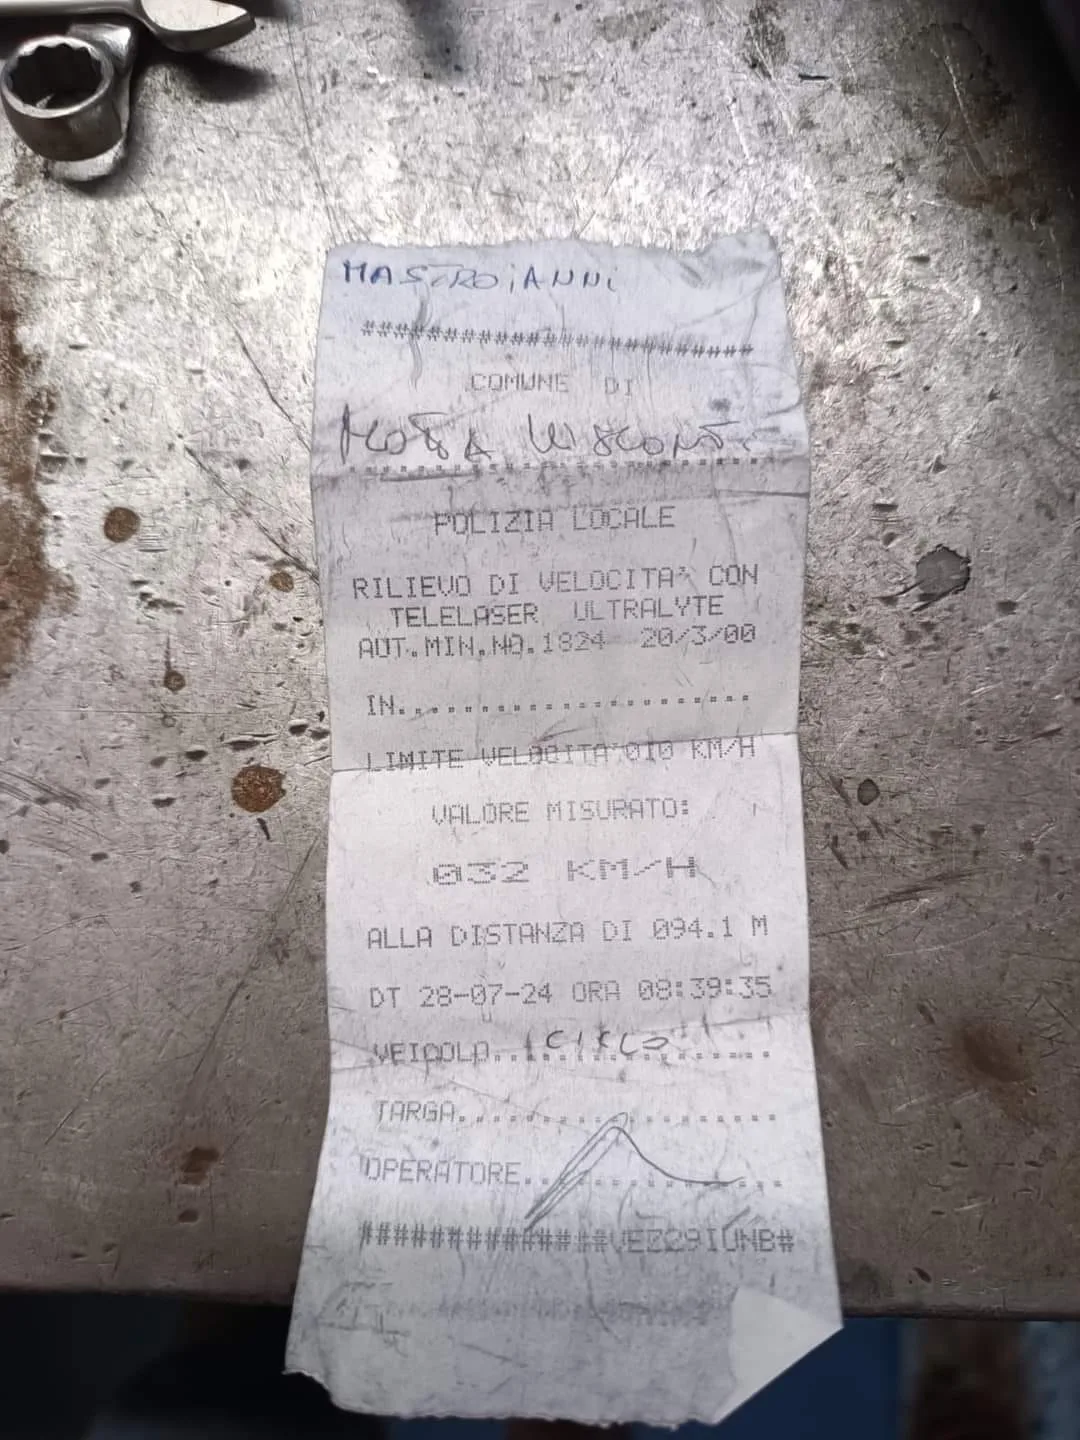 MASTROiANNi
########################
COMUNE DI
MOTTA VISCONTi
POLIZIA LOCALE
RILIEVO DI VELOCITA' CON
TELELASER ULTRALYTE
AUT.MIN.NO.1824 20/3/00
IN......................
LIMITE VELOCITA'010 KM/H
VALORE MISURATO:
032 KM/H
ALLA DISTANZA DI 094.1 M
DT 28-07-24 ORA 08:39:35
VEICOLO..CiCLO......
TARGA...................
OPERATORE...............
###############VEZ29IUNB#